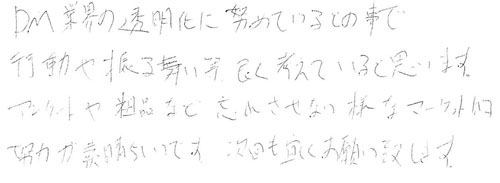 DM業界の透明化に努めているとの事で
行動や振る舞い等、良く考えていると思います。
アンケートや粗品など忘れさせない様なマーケットは
努力が素晴らしいです 次回も宜しくお願い致します